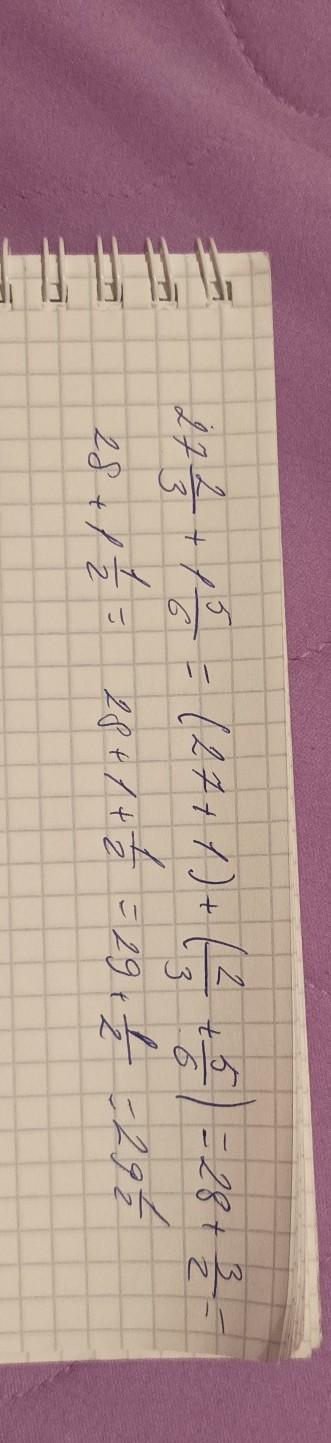 27 2/3 + 1 5/6 = (27 + 1) + (2/3 + 5/6) = 28 + 3/2 =
28 + 1 1/2 = 28 + 1 + 1/2 = 29 + 1/2 = 29 1/2